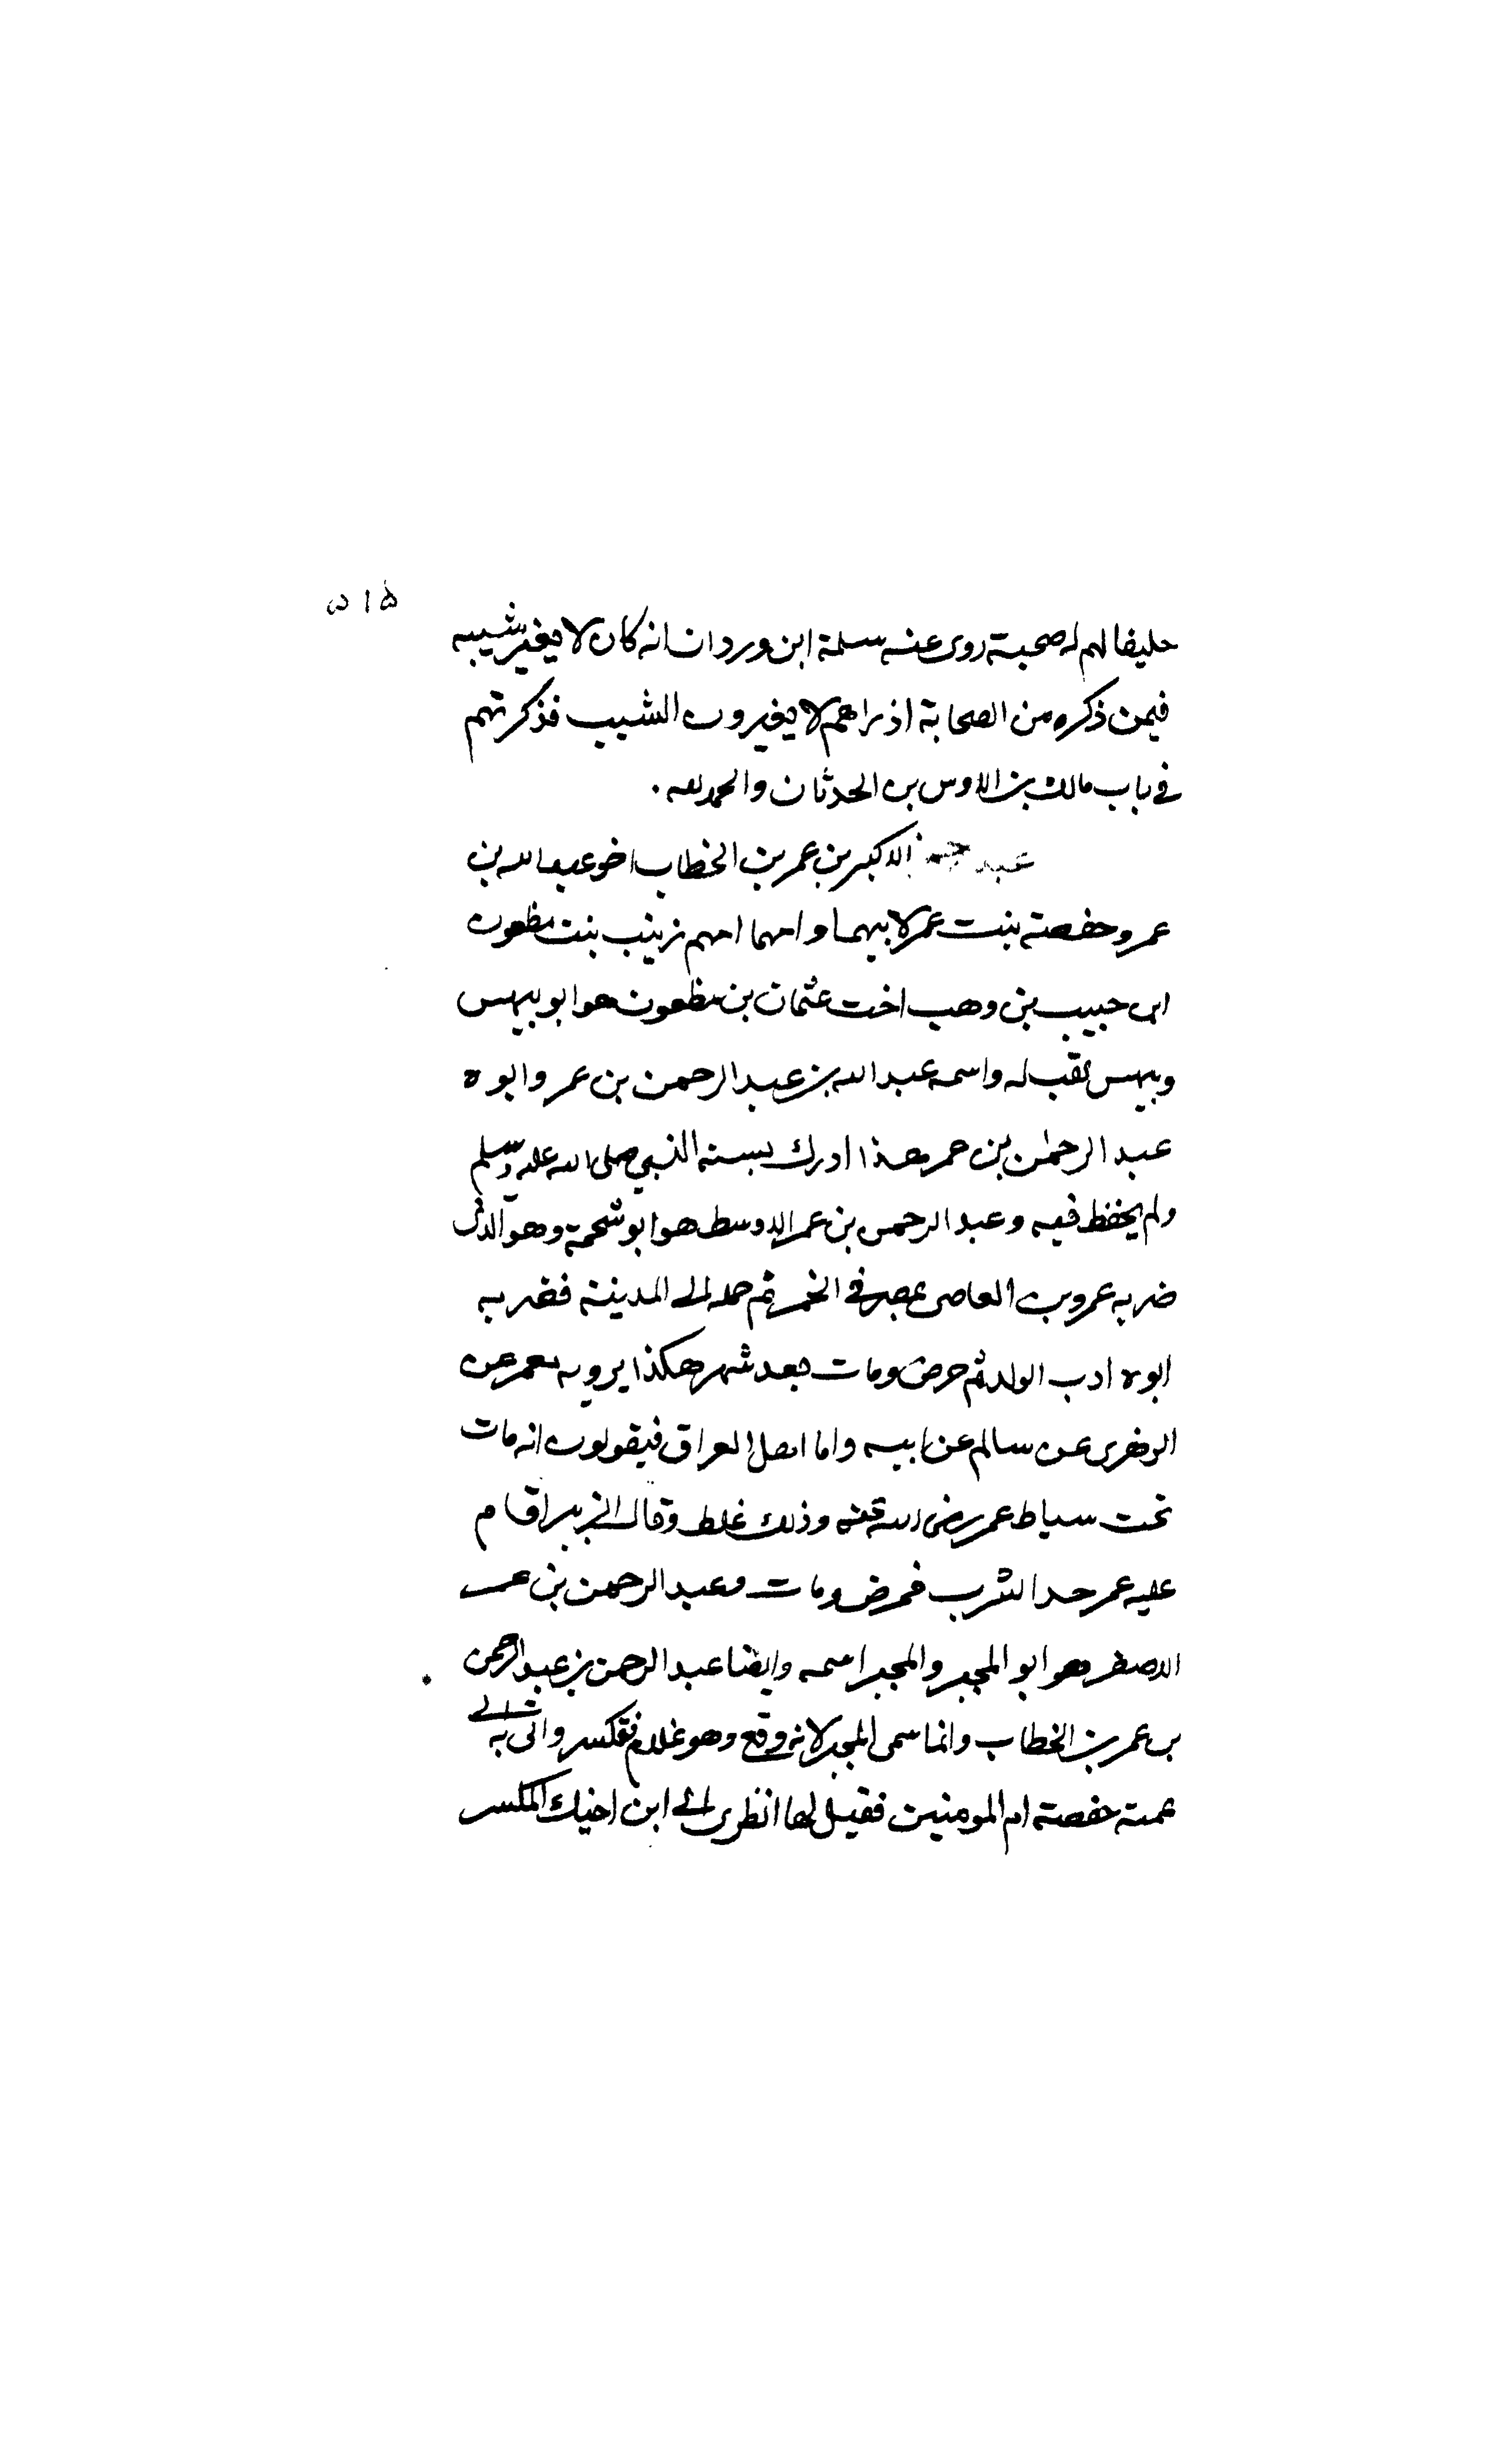 ٥١٥
حليفا لهم له صحبة روى عنه سلمة ابن وردان انه كان لا يغير شيبه
فيمن ذكره من الصحابة اذ راهم لا يغيرون الشيب فذكرتهم
في باب مالك بن الاوس بن الحدثان والحمد لله .
عبد الاكبر بن عمر بن الخطاب اخو عبد الله بن
عمر وحفصة بنت عمر لابيهما وامهما امهم زينب بنت مظعون
ابن حبيب بن وهب اخت عثمان بن مظعون هو ابو بيهس
وبيهس لقب له واسمه عبد الله بن عبد الرحمن بن عمر وابوه
عبد الرحمن بن عمر هذا ادرك بسنه النبي صلى الله عليه وسلم
ولم يحفظ فيه وعبد الرحمن بن عمر الاوسط هو ابو شحمة وهو الذى
ضربه عمرو بن العاصى بمصر في الخمر ثم حمله الى المدينة فضربه
ابوه ادب الولد ثم مرض ومات بعد شهر هكذا يرويه معمر عن
الزهرى عن سالم عن ابيه واما اهل العراق فيقولون انه مات
تحت سياط عمر رضى الله عنه وذلك غلط وقال الزبير اقام
عليه عمر حد الشرب فمرض ومات وعبد الرحمن بن عمر
الاصغر هو ابو المجبر والمجبر اسمه وايضا عبد الرحمن بن عبد الرحمن
بن عمر بن الخطاب وانما سمى المجبر لانه وقع وهو غلام فتكسر واتى به الى
عمته حفصة ام المومنين فقيل لها انظرى الى ابن اخيك المكسر